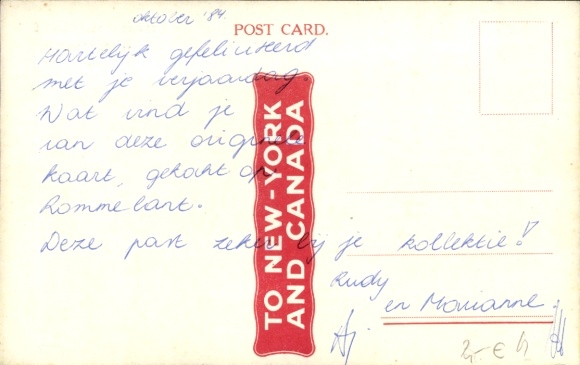 oktober '84.
POST CARD.
Hartelijk gefeliciteerd
met je verjaardag.
Wat vind je
van deze originele
kaart, gekocht op
Rommelart.
Deze past zeker bij je kollektie!
Rudy
en Marianne.
TO NEW-YORK
AND CANADA